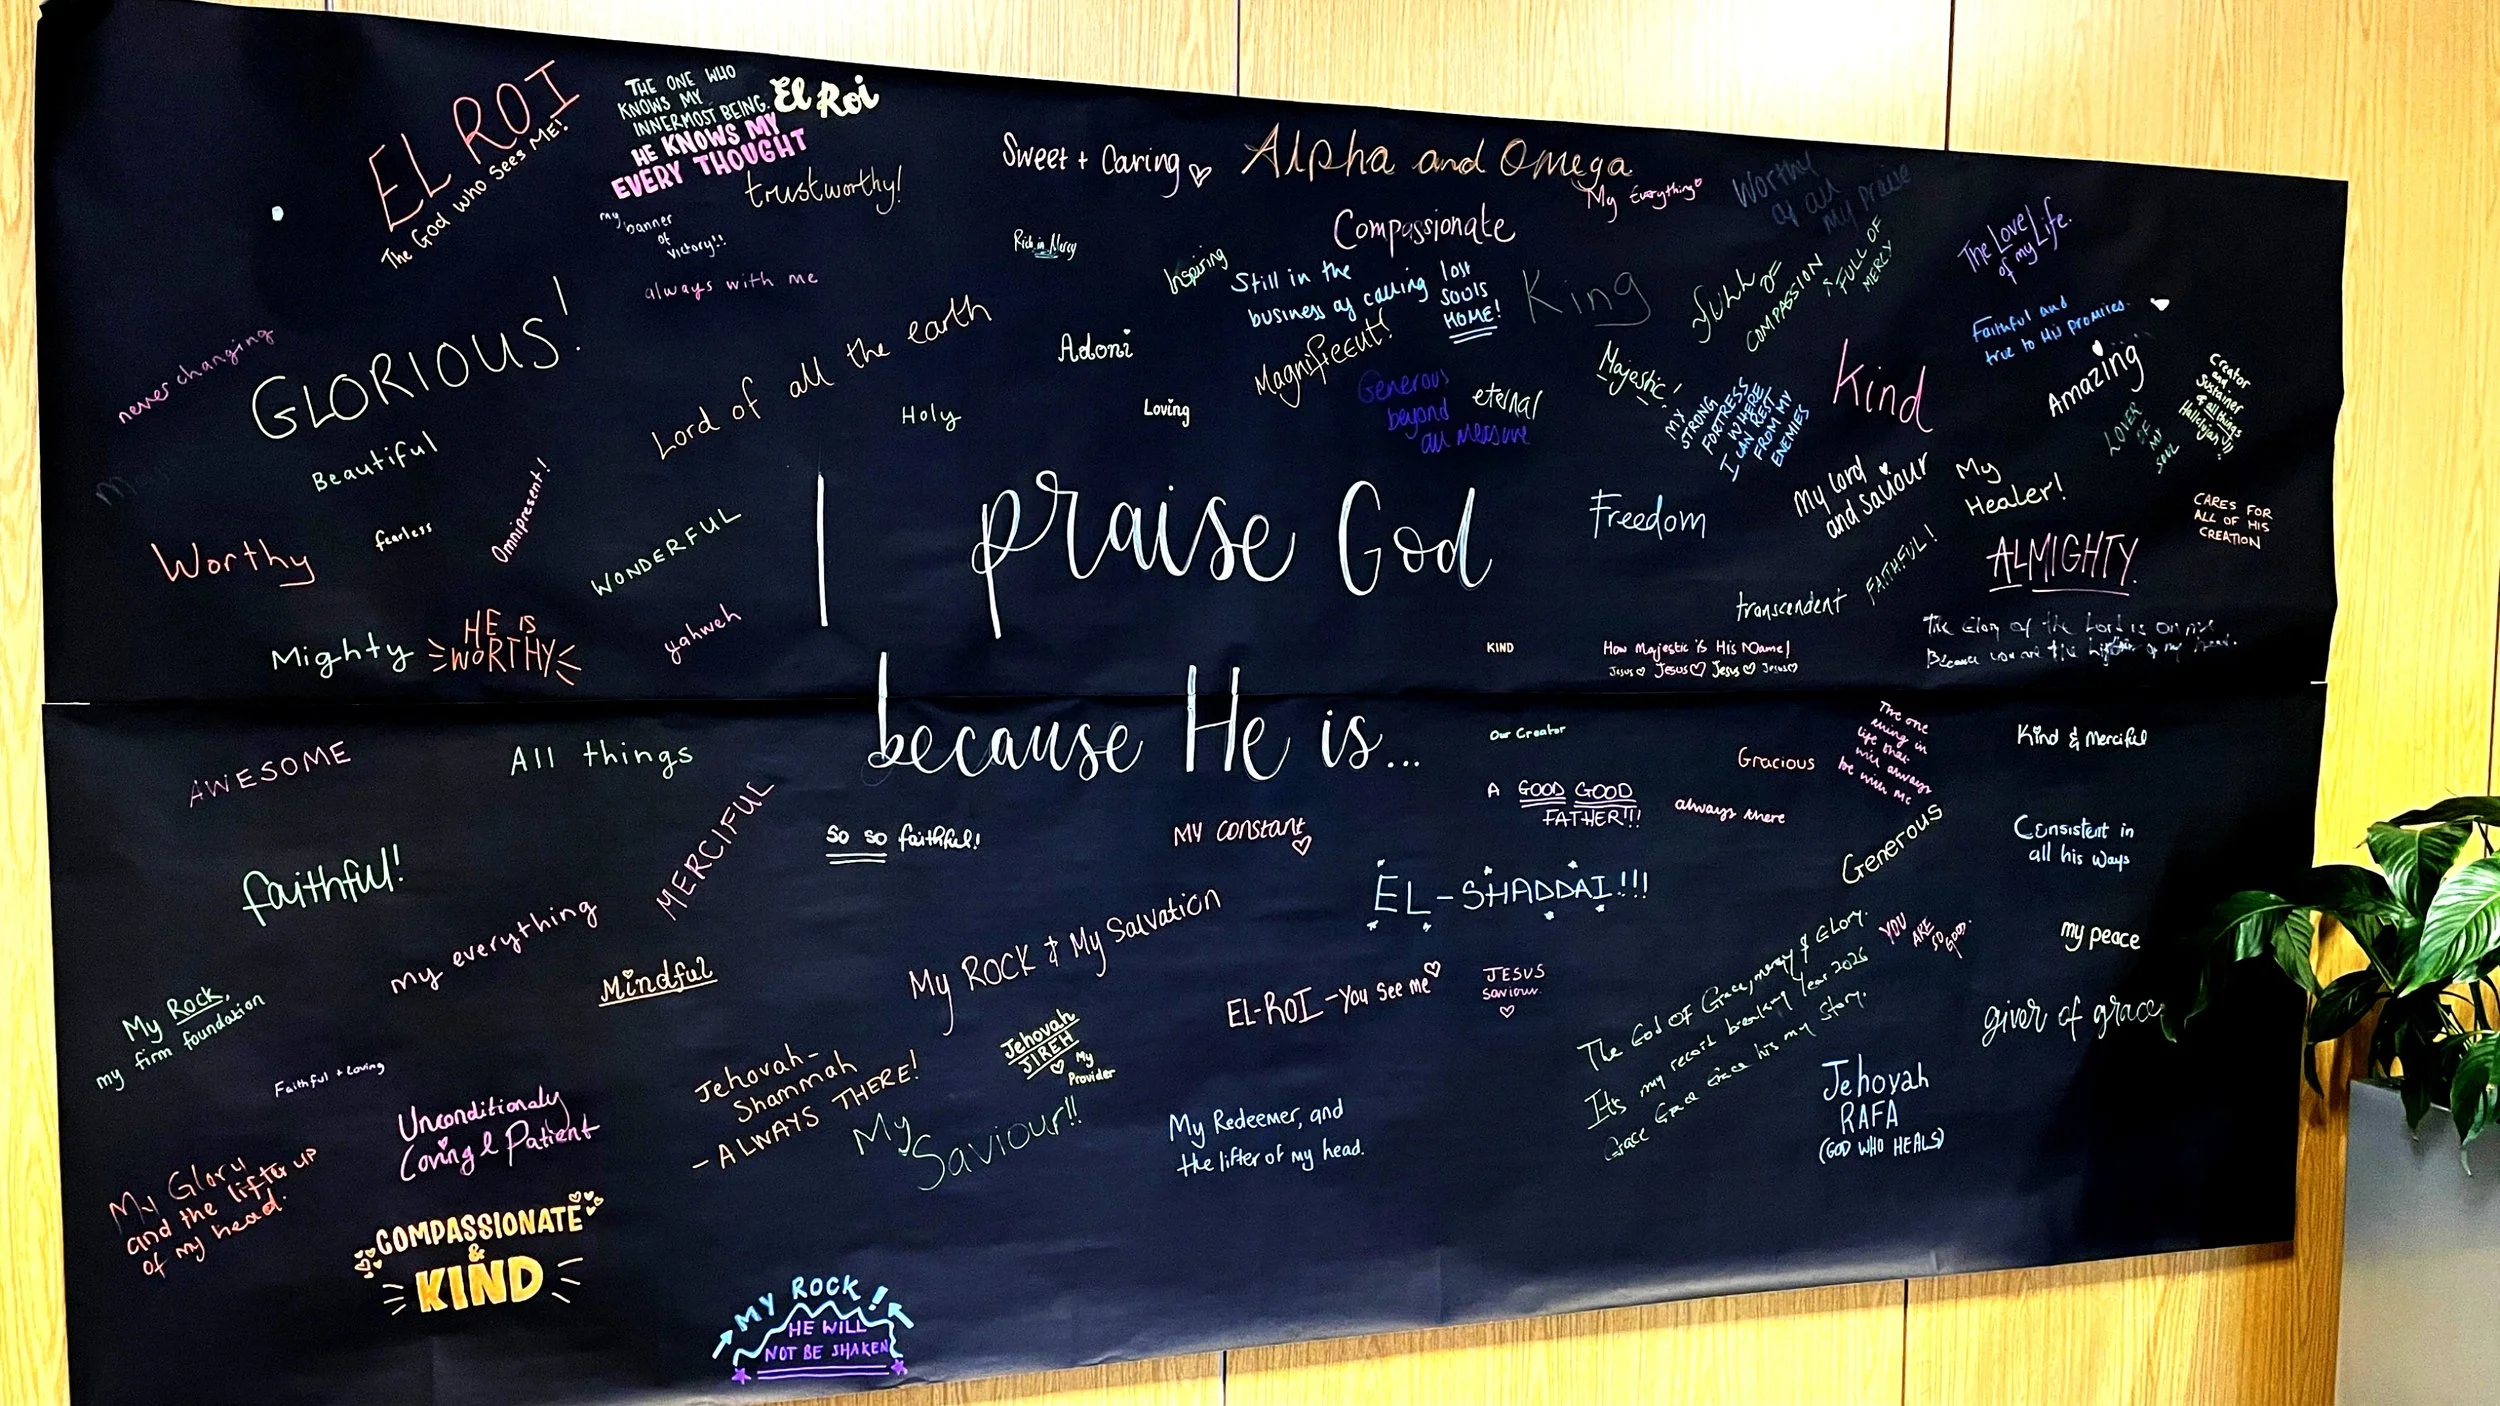 EL ROI
The God who Sees Me!
THE ONE WHO
KNOWS MY
INNERMOST BEING.
El Roi
HE KNOWS MY
EVERY THOUGHT
trustworthy!
my
banner
of
victory!!
always with me
Sweet + Caring
Alpha and Omega
My Everything
Worthy
of all
my praise
Compassionate
Rich in Mercy
Inspiring
Still in the
business of calling
lost
souls
HOME!
King
Full OF
COMPASSION
& FULL OF
MERCY
The Love
of my Life.
Faithful and
true to His promises.
never changing
GLORIOUS!
Beautiful
Lord of all the earth
Adoni
Magnificent!
Holy
Loving
Generous
beyond
all measure
eternal
Majestic!
MY
STRONG
FORTRESS
WHERE
I CAN REST
FROM MY
ENEMIES
Kind
Amazing
LOVER
OF
MY
SOUL
Creator
and
Sustainer
of all things
Hallelujah!!
Worthy
fearless
Omnipresent!
WONDERFUL
I praise God
Freedom
My Lord
and Saviour
My
Healer!
CARES FOR
ALL OF HIS
CREATION
ALMIGHTY.
transcendent
FAITHFUL!
Mighty
HE IS
WORTHY
yahweh
KIND
How Majestic is His Name!
Jesus Jesus Jesus Jesus
The Glory of the Lord is on
Because you are the lifter of my head.
because He is...
AWESOME
All things
MERCIFUL
Our Creator
Gracious
The one
thing in
life that
will always
be with me
Kind & Merciful
A GOOD GOOD
FATHER!!!
always there
Generous
Consistent in
all his ways
so so faithful!
MY CONSTANT
faithful!
my everything
EL-SHADDAI!!!
My ROCK & My Salvation
Mindful
YOU
ARE
SO
GOOD.
my peace
My Rock,
my firm foundation
EL-ROI - You see me
JESUS
Saviour.
The God Of Grace, mercy & Glory.
It's my record breaking Year 2026
Grace Grace Grace his my story.
giver of grace
Faithful + Loving
Jehovah-
Shammah
- ALWAYS THERE!
Jehovah
JIREH
My
Provider
Unconditionaly
Loving & Patient
My
Saviour!!
My Redeemer, and
the lifter of my head.
Jehovah
RAFA
(GOD WHO HEALS)
My Glory
and the lifter up
of my head.
COMPASSIONATE
&
KIND
MY ROCK!
HE WILL
NOT BE SHAKEN